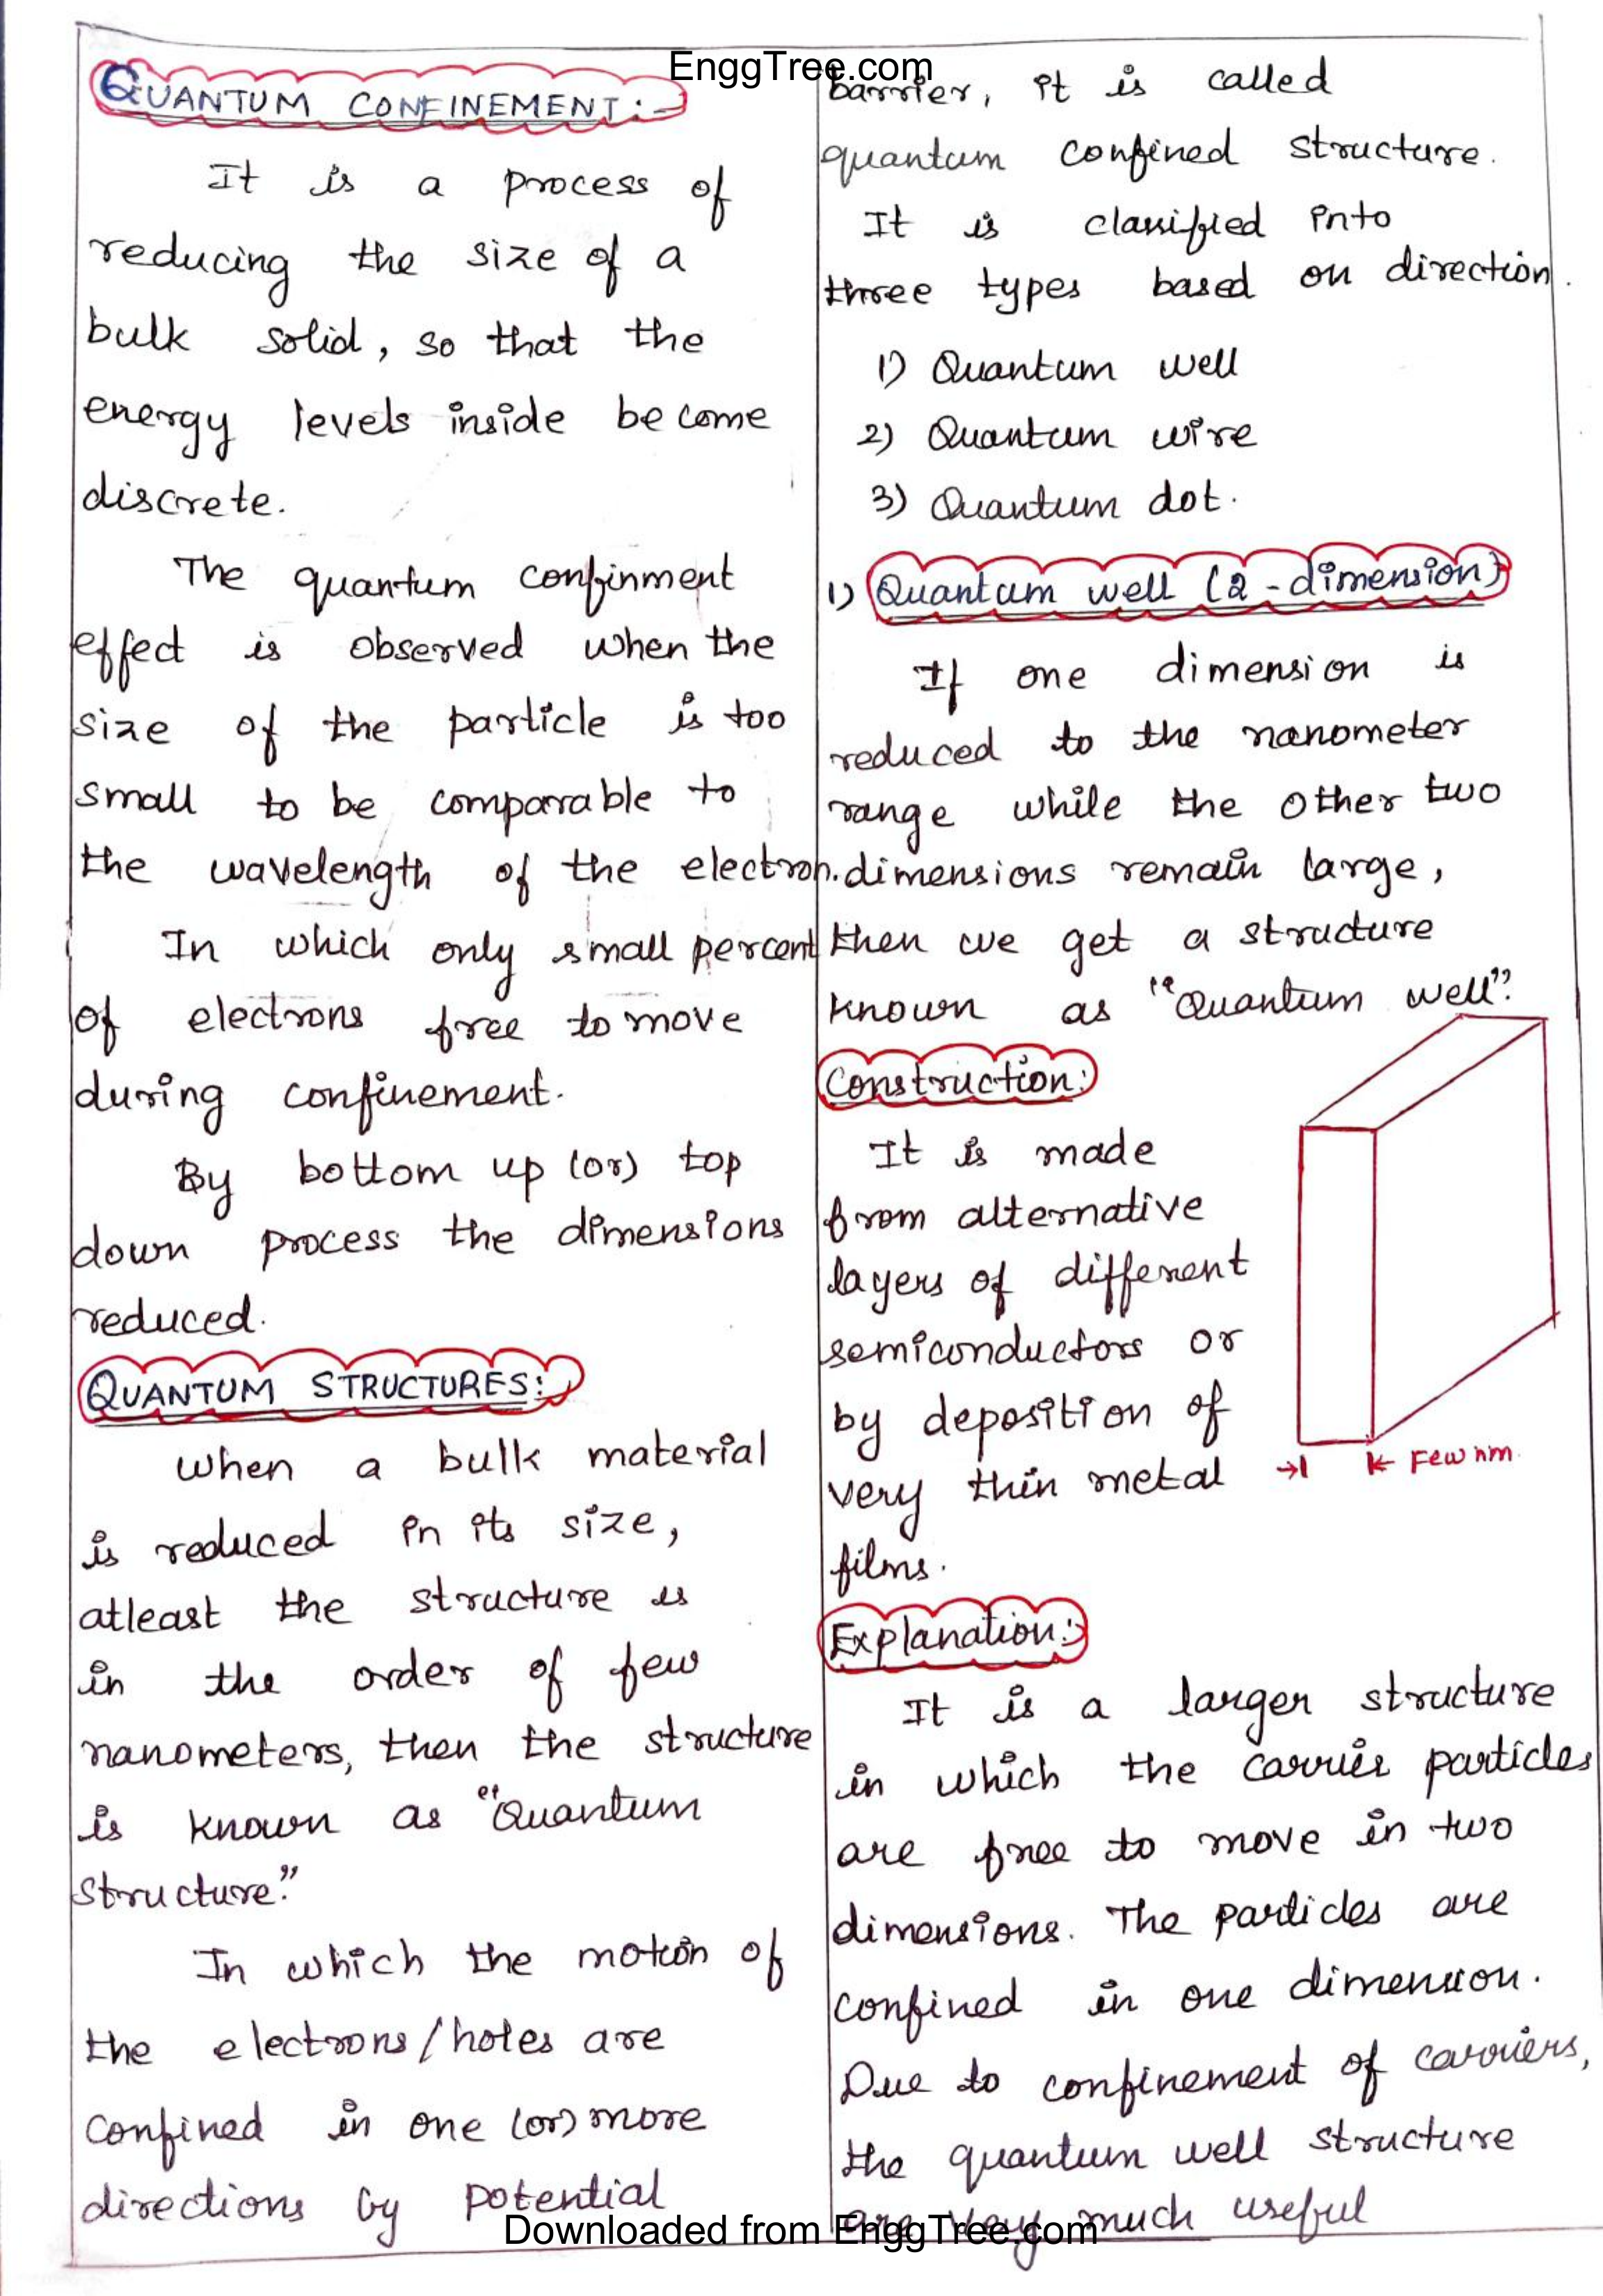 EnggTree.com
QUANTUM CONFINEMENT:-
It is a process of
reducing the size of a
bulk solid, so that the
energy levels inside become
discrete.
The quantum confinment
effect is observed when the
size of the particle is too
small to be comparable to
the wavelength of the electron.
In which only small percent
of electrons free to move
during confinement.
By bottom up (or) top
down process the dimensions
reduced.
QUANTUM STRUCTURES:-
When a bulk material
is reduced in its size,
atleast the structure is
in the order of few
nanometers, then the structure
is known as "Quantum
structure."
In which the motion of
the electrons/holes are
confined in one (or) more
directions by potential
barrier, it is called
quantum confined structure.
It is classified into
three types based on direction.
1) Quantum well
2) Quantum wire
3) Quantum dot.
1) Quantum well (2-dimension)
If one dimension is
reduced to the nanometer
range while the other two
dimensions remain large,
then we get a structure
known as "Quantum well".
Construction:
It is made
from alternative
layers of different
semiconductors or
by deposition of
very thin metal
films.
Few nm.
Explanation:
It is a larger structure
in which the carrier particles
are free to move in two
dimensions. The particles are
confined in one dimension.
Due to confinement of carriers,
the quantum well structure
are very much useful
Downloaded from EnggTree.com